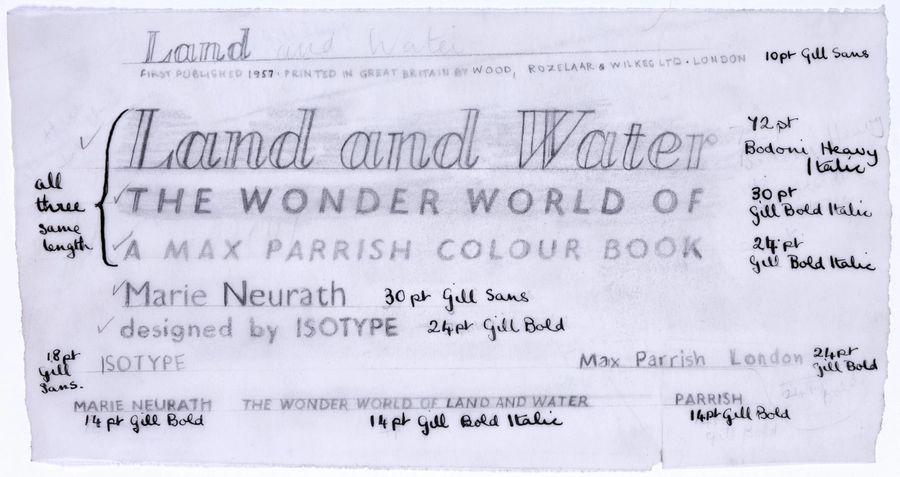 Land and Water
FIRST PUBLISHED 1957 · PRINTED IN GREAT BRITAIN BY WOOD, ROZELAAR & WILKES LTD · LONDON 10pt Gill Sans
Land and Water 72pt Bodoni Heavy Italic
all three same length
THE WONDER WORLD OF 30pt Gill Bold Italic
A MAX PARRISH COLOUR BOOK 24pt Gill Bold Italic
Marie Neurath 30pt Gill Sans
designed by ISOTYPE 24pt Gill Bold
18pt Gill Sans. ISOTYPE Max Parrish London 24pt Gill Bold
MARIE NEURATH THE WONDER WORLD OF LAND AND WATER PARRISH
14pt Gill Bold 14pt Gill Bold Italic 14pt Gill Bold